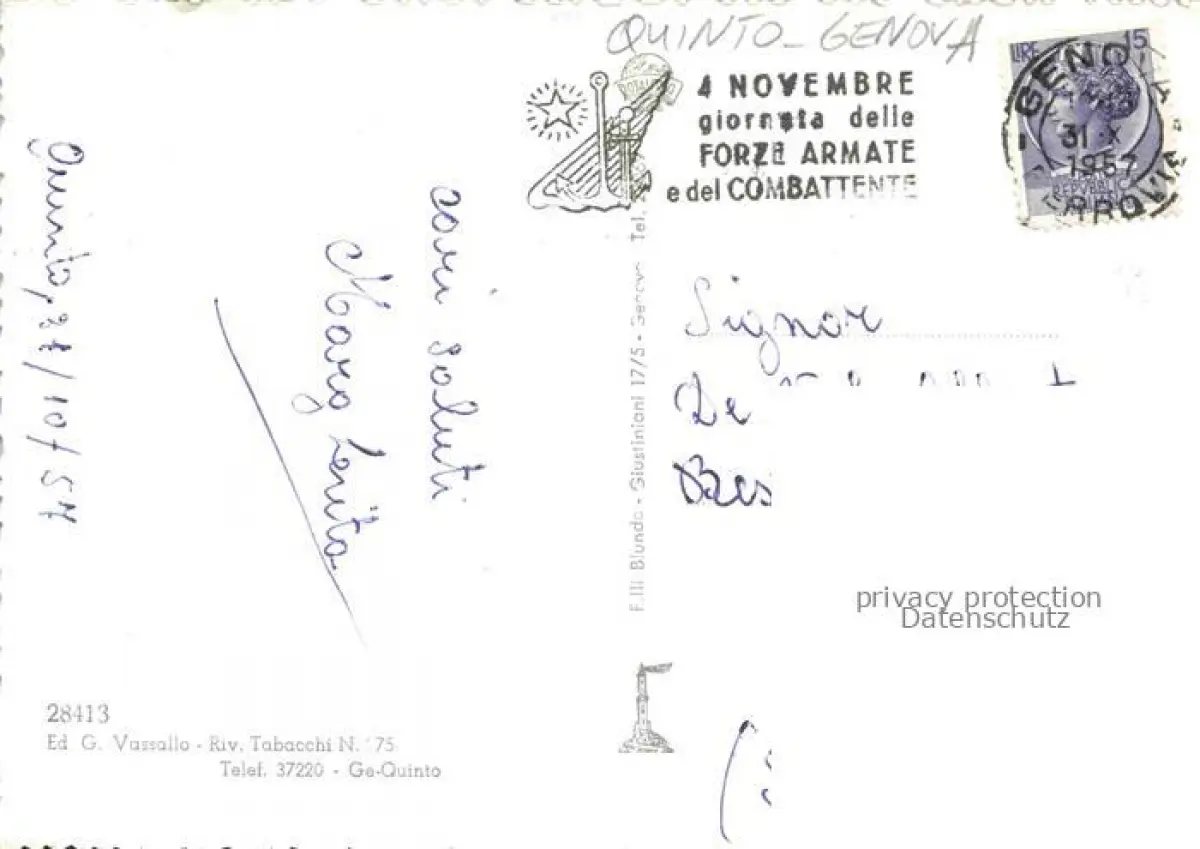 QUINTO - GENOVA
4 NOVEMBRE
giornata delle
FORZE ARMATE
e del COMBATTENTE
LIRE 15
GENOVA
31 X
1957
FERROVIA
REPVBBLIC
Quinto, 31/10/57
cari saluti
Signor
De
F.lli Blundo - Giustiniani 17/5 - Genova Tel.
privacy protection
Datenschutz
28413
Ed G. Vassallo - Riv. Tabacchi N. 75
Telef. 37220 - Ge-Quinto